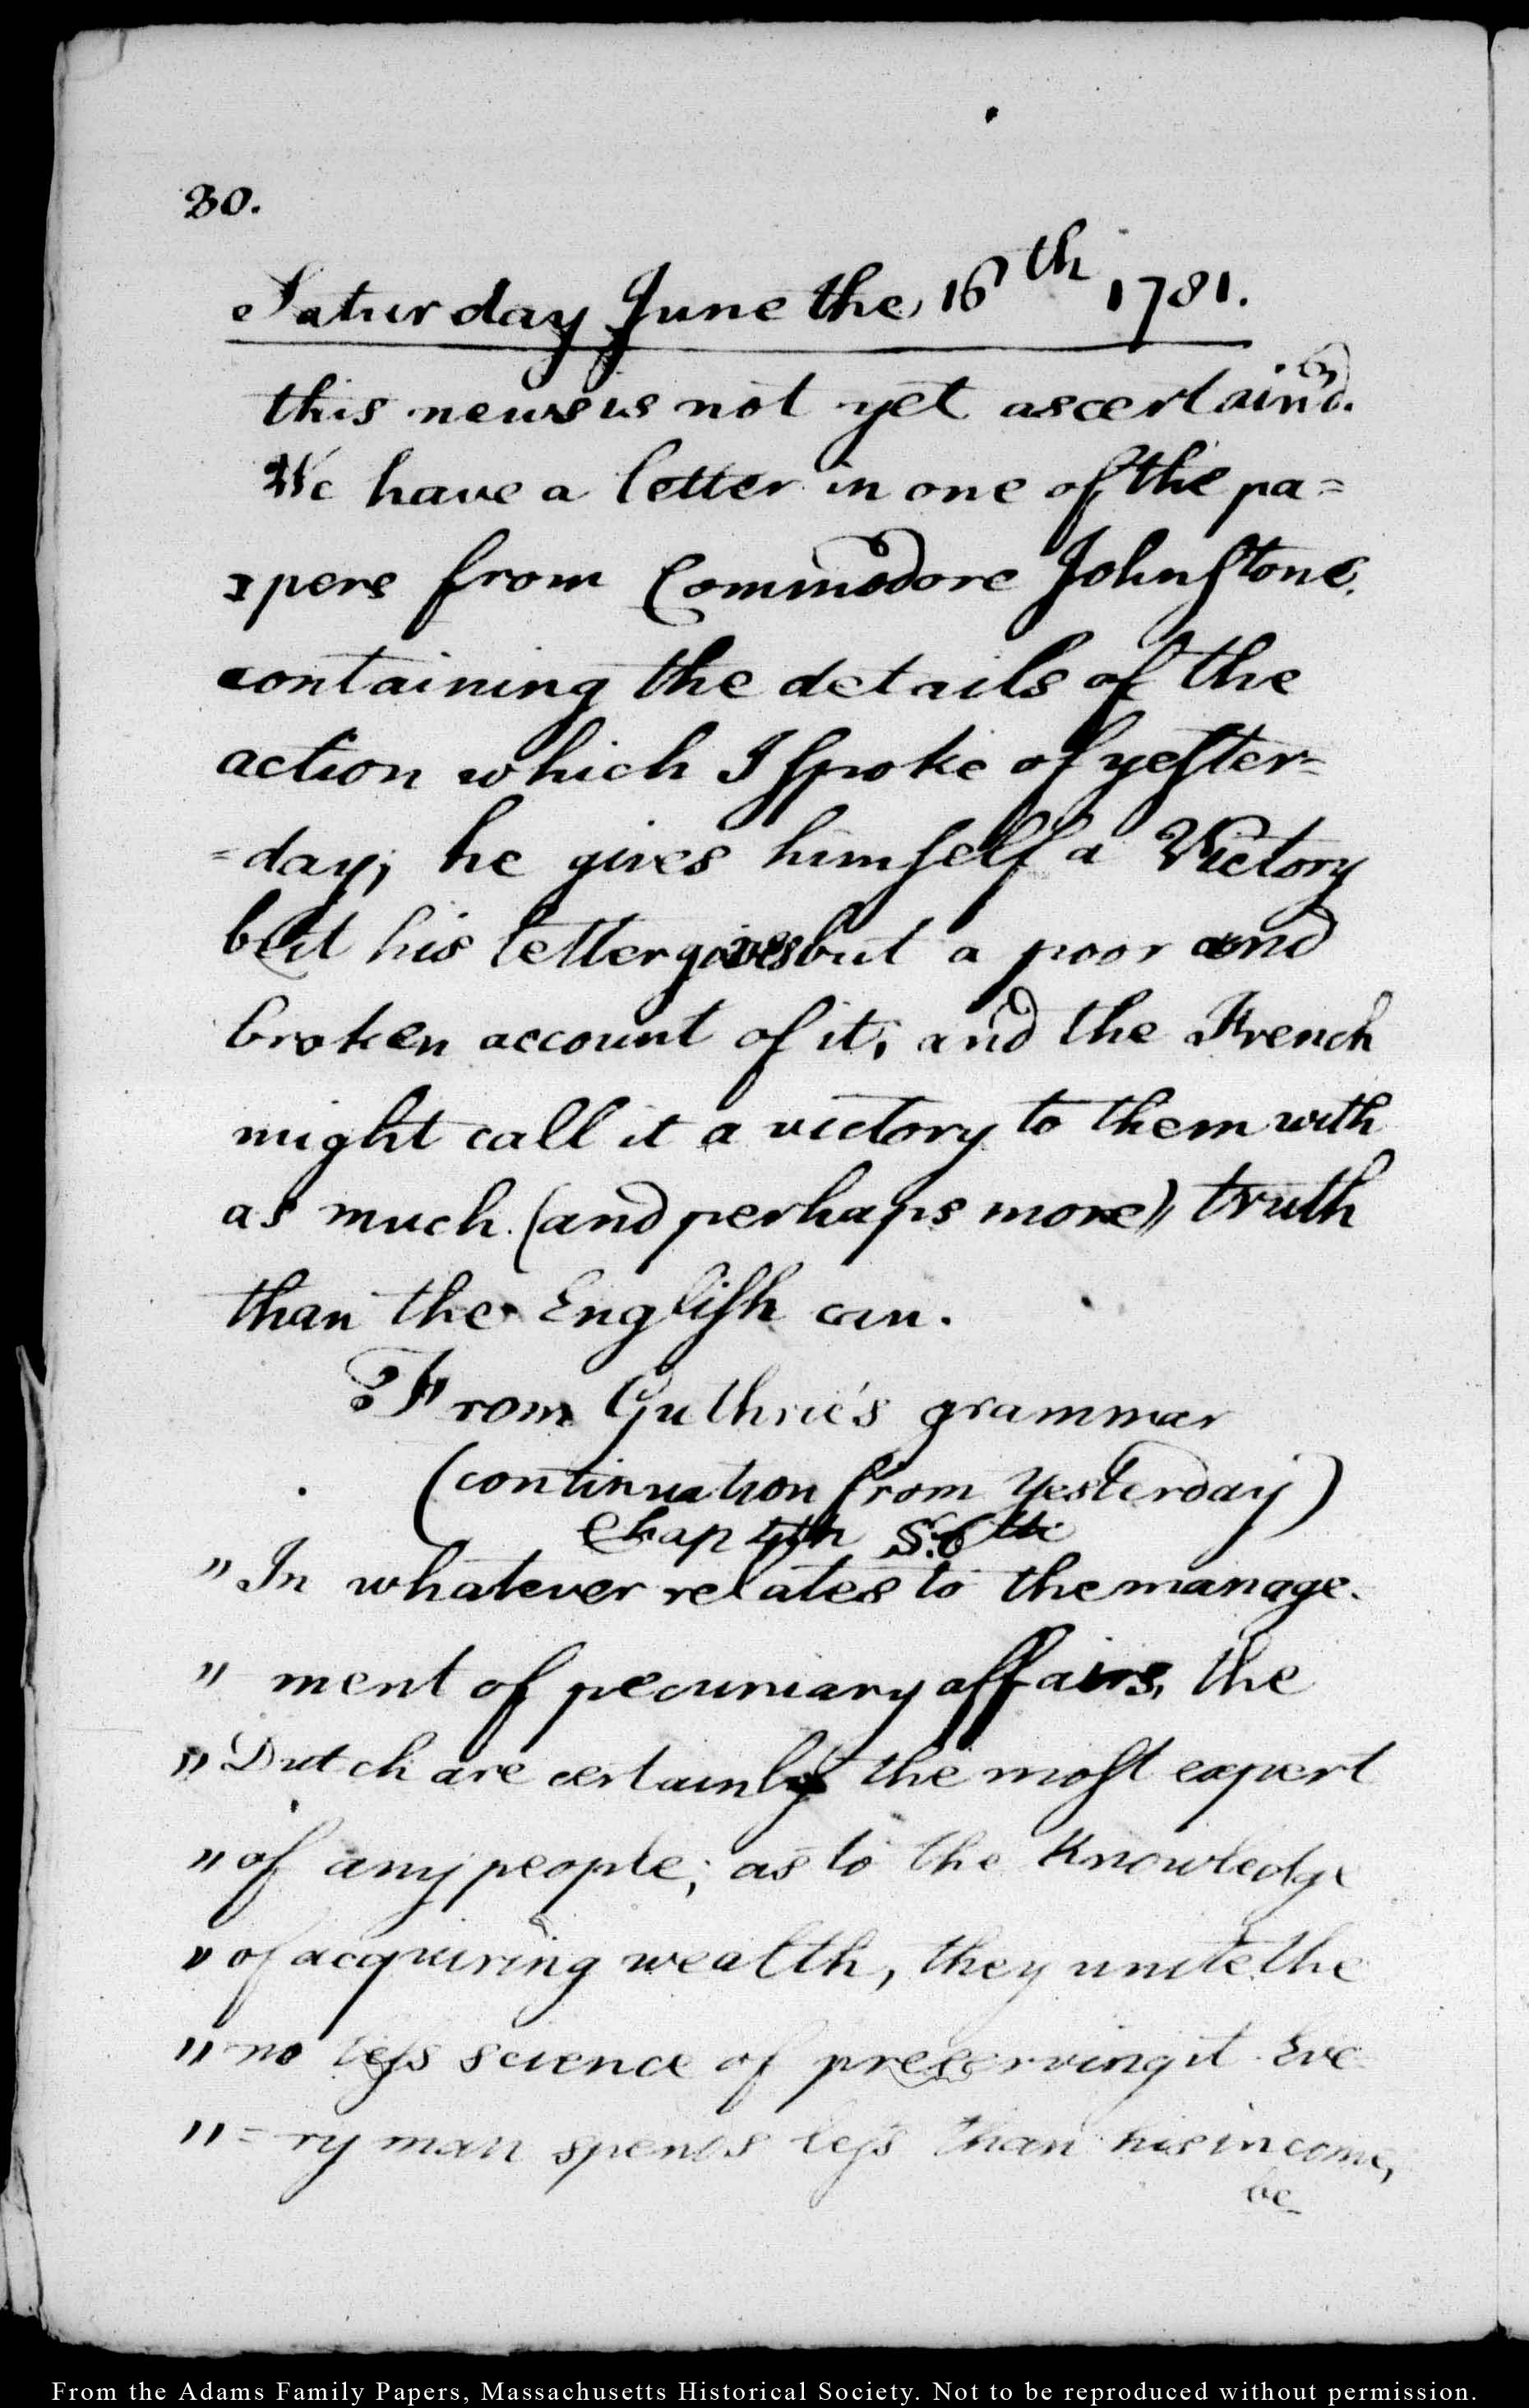 30.
Saturday June the 16th 1781.
this news is not yet ascertain'd.
We have a letter in one of the pa=
=pers from Commodore Johnstone,
containing the details of the
action which I spoke of yester=
=day, he gives himself a Victory
but his letter gives but a poor and
broken account of it, and the French
might call it a victory to them with
as much (and perhaps more) truth
than the English can.
From Guthrie's grammar
(continuation from Yesterday)
Chap
" In whatever relates to the manage-
" ment of pecuniary affairs, the
" Dutch are certainly the most expert
" of any people; as to the Knowledge
" of acquiring wealth, they unite the
" no less science of preserving it. Eve
" =ry man spends less than his income,
be
From the Adams Family Papers, Massachusetts Historical Society. Not to be reproduced without permission.